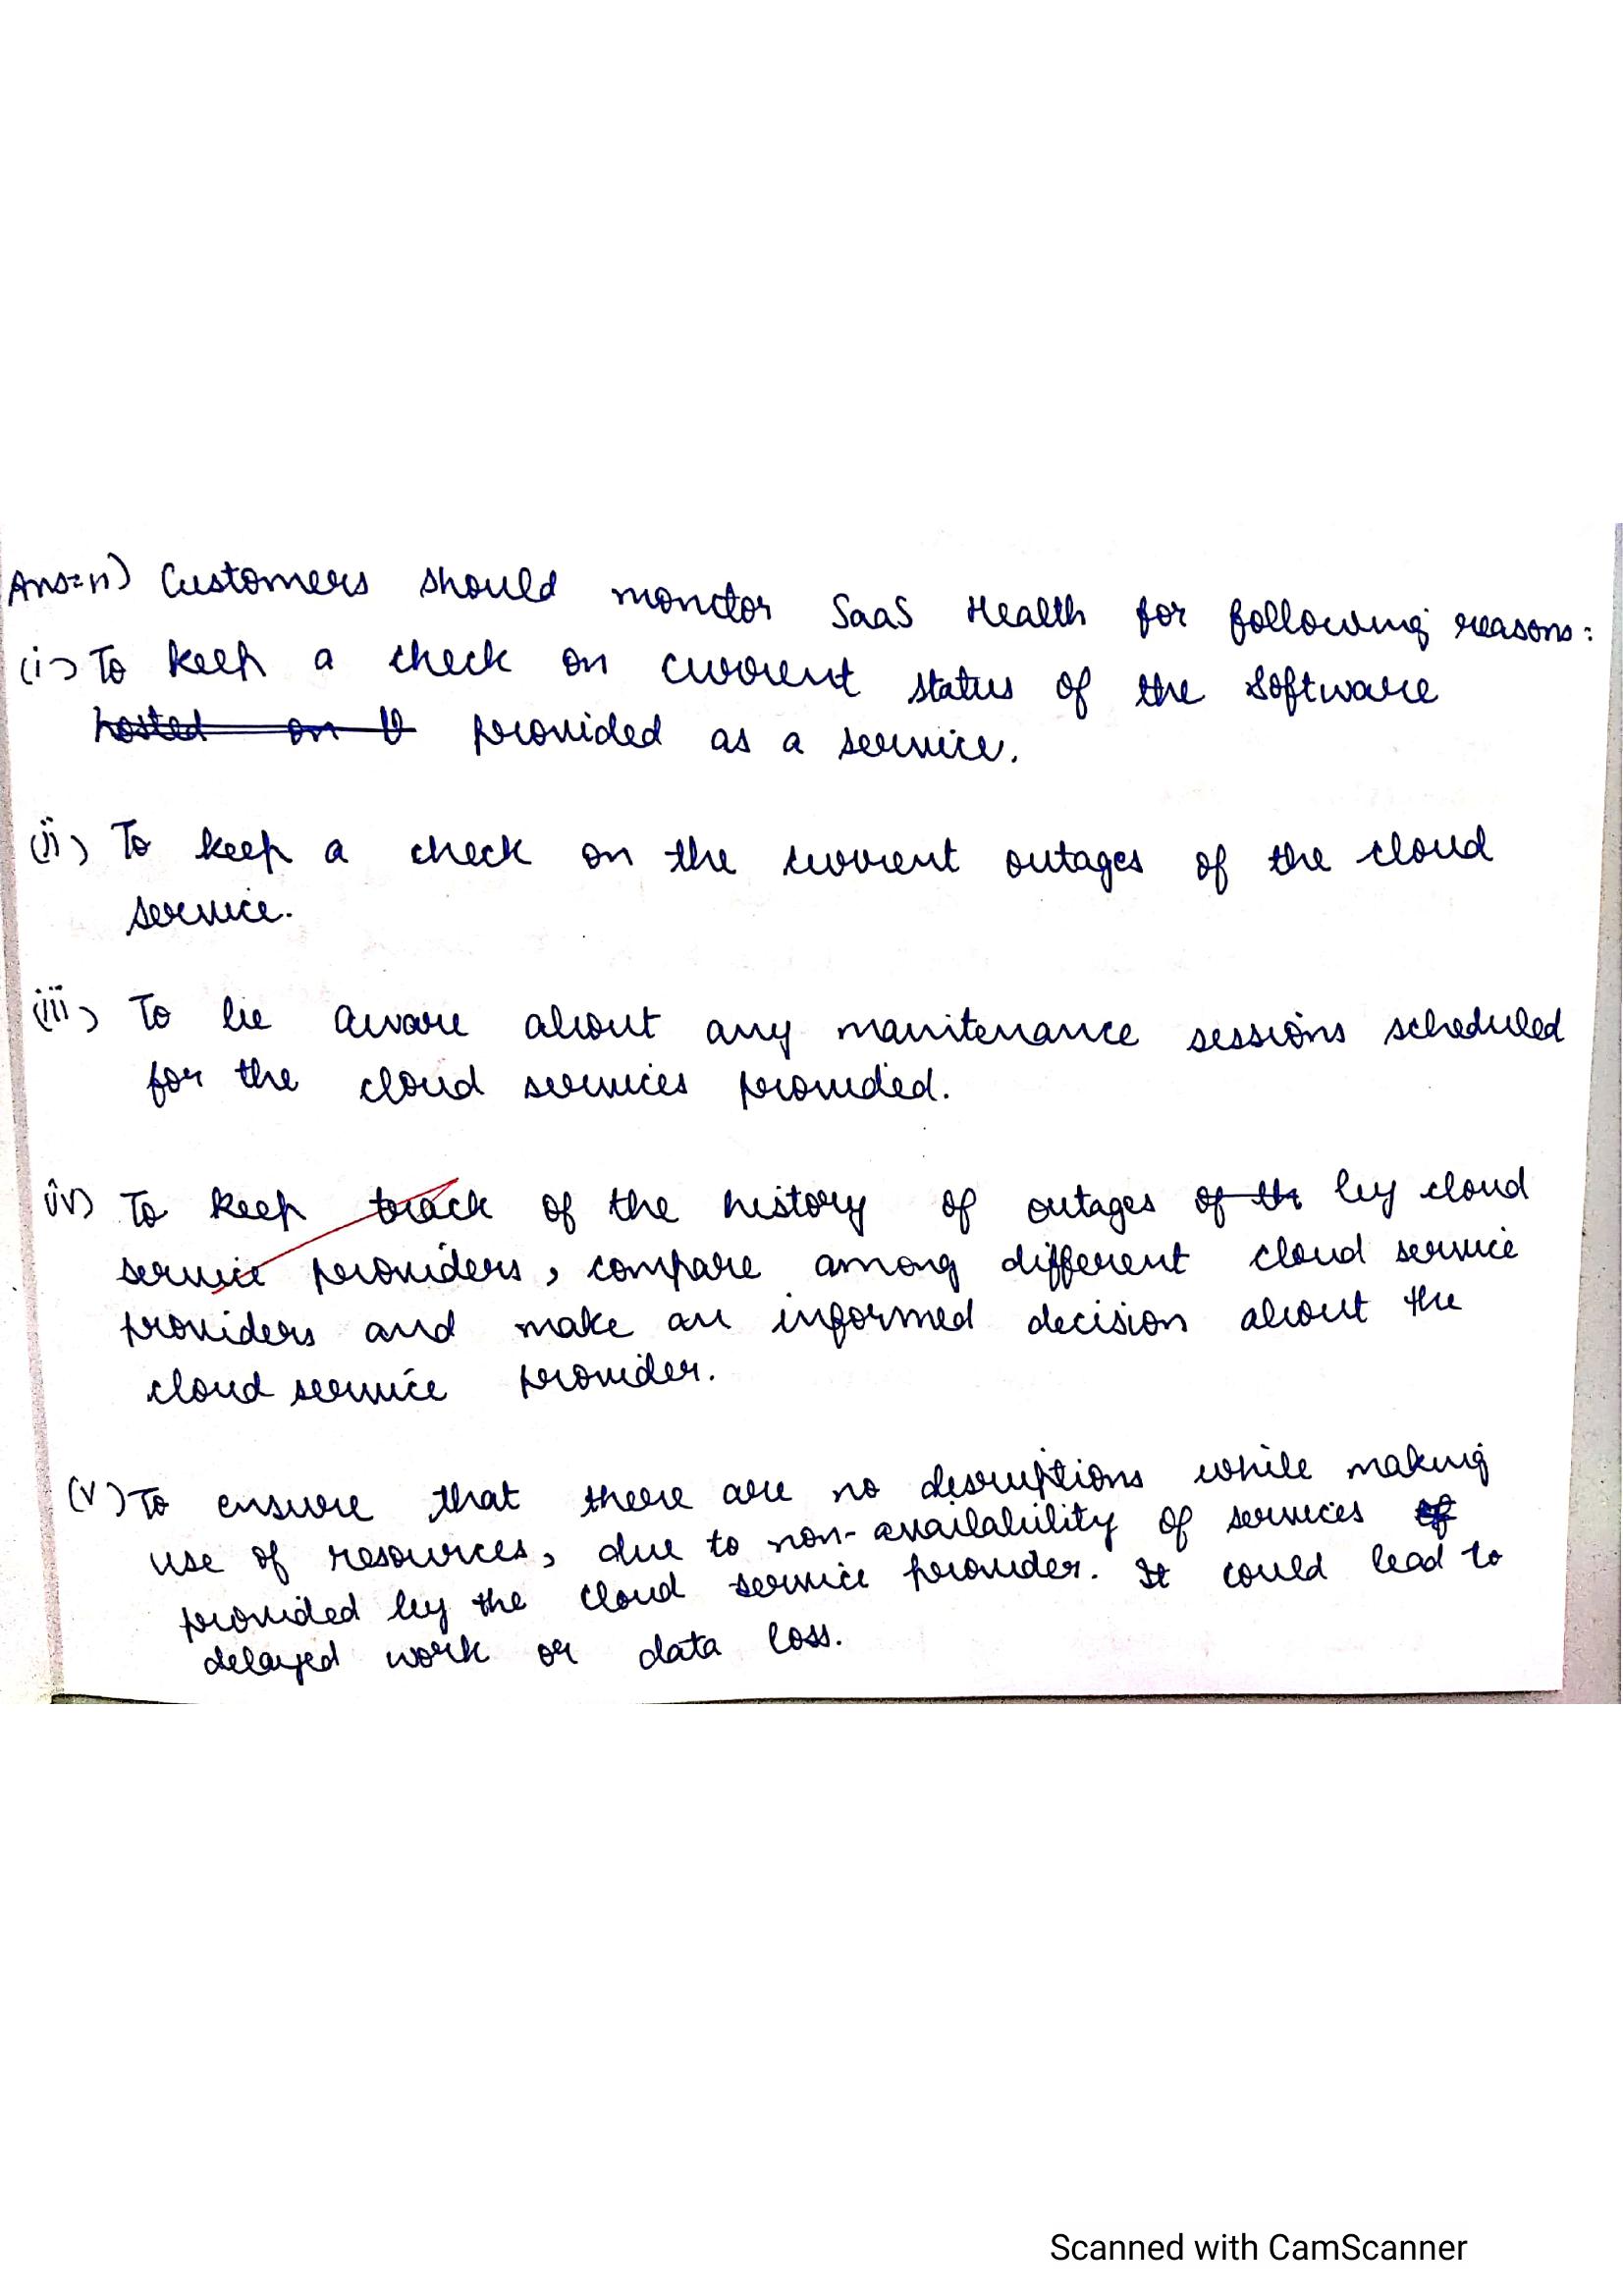 Ans=11) Customers should monitor SaaS Health for following reasons:
(i) To keep a check on current status of the software
hosted on provided as a service.
(ii) To keep a check on the current outages of the cloud
service.
(iii) To be aware about any manitenance sessions scheduled
for the cloud services provided.
(iv) To keep track of the history of outages of th by cloud
service providers, compare among different cloud service
providers and make an informed decision about the
cloud service provider.
(v) To ensure that there are no disruptions while making
use of resources, due to non-availability of services of
provided by the cloud service provider. It could lead to
delayed work or data loss.
Scanned with CamScanner